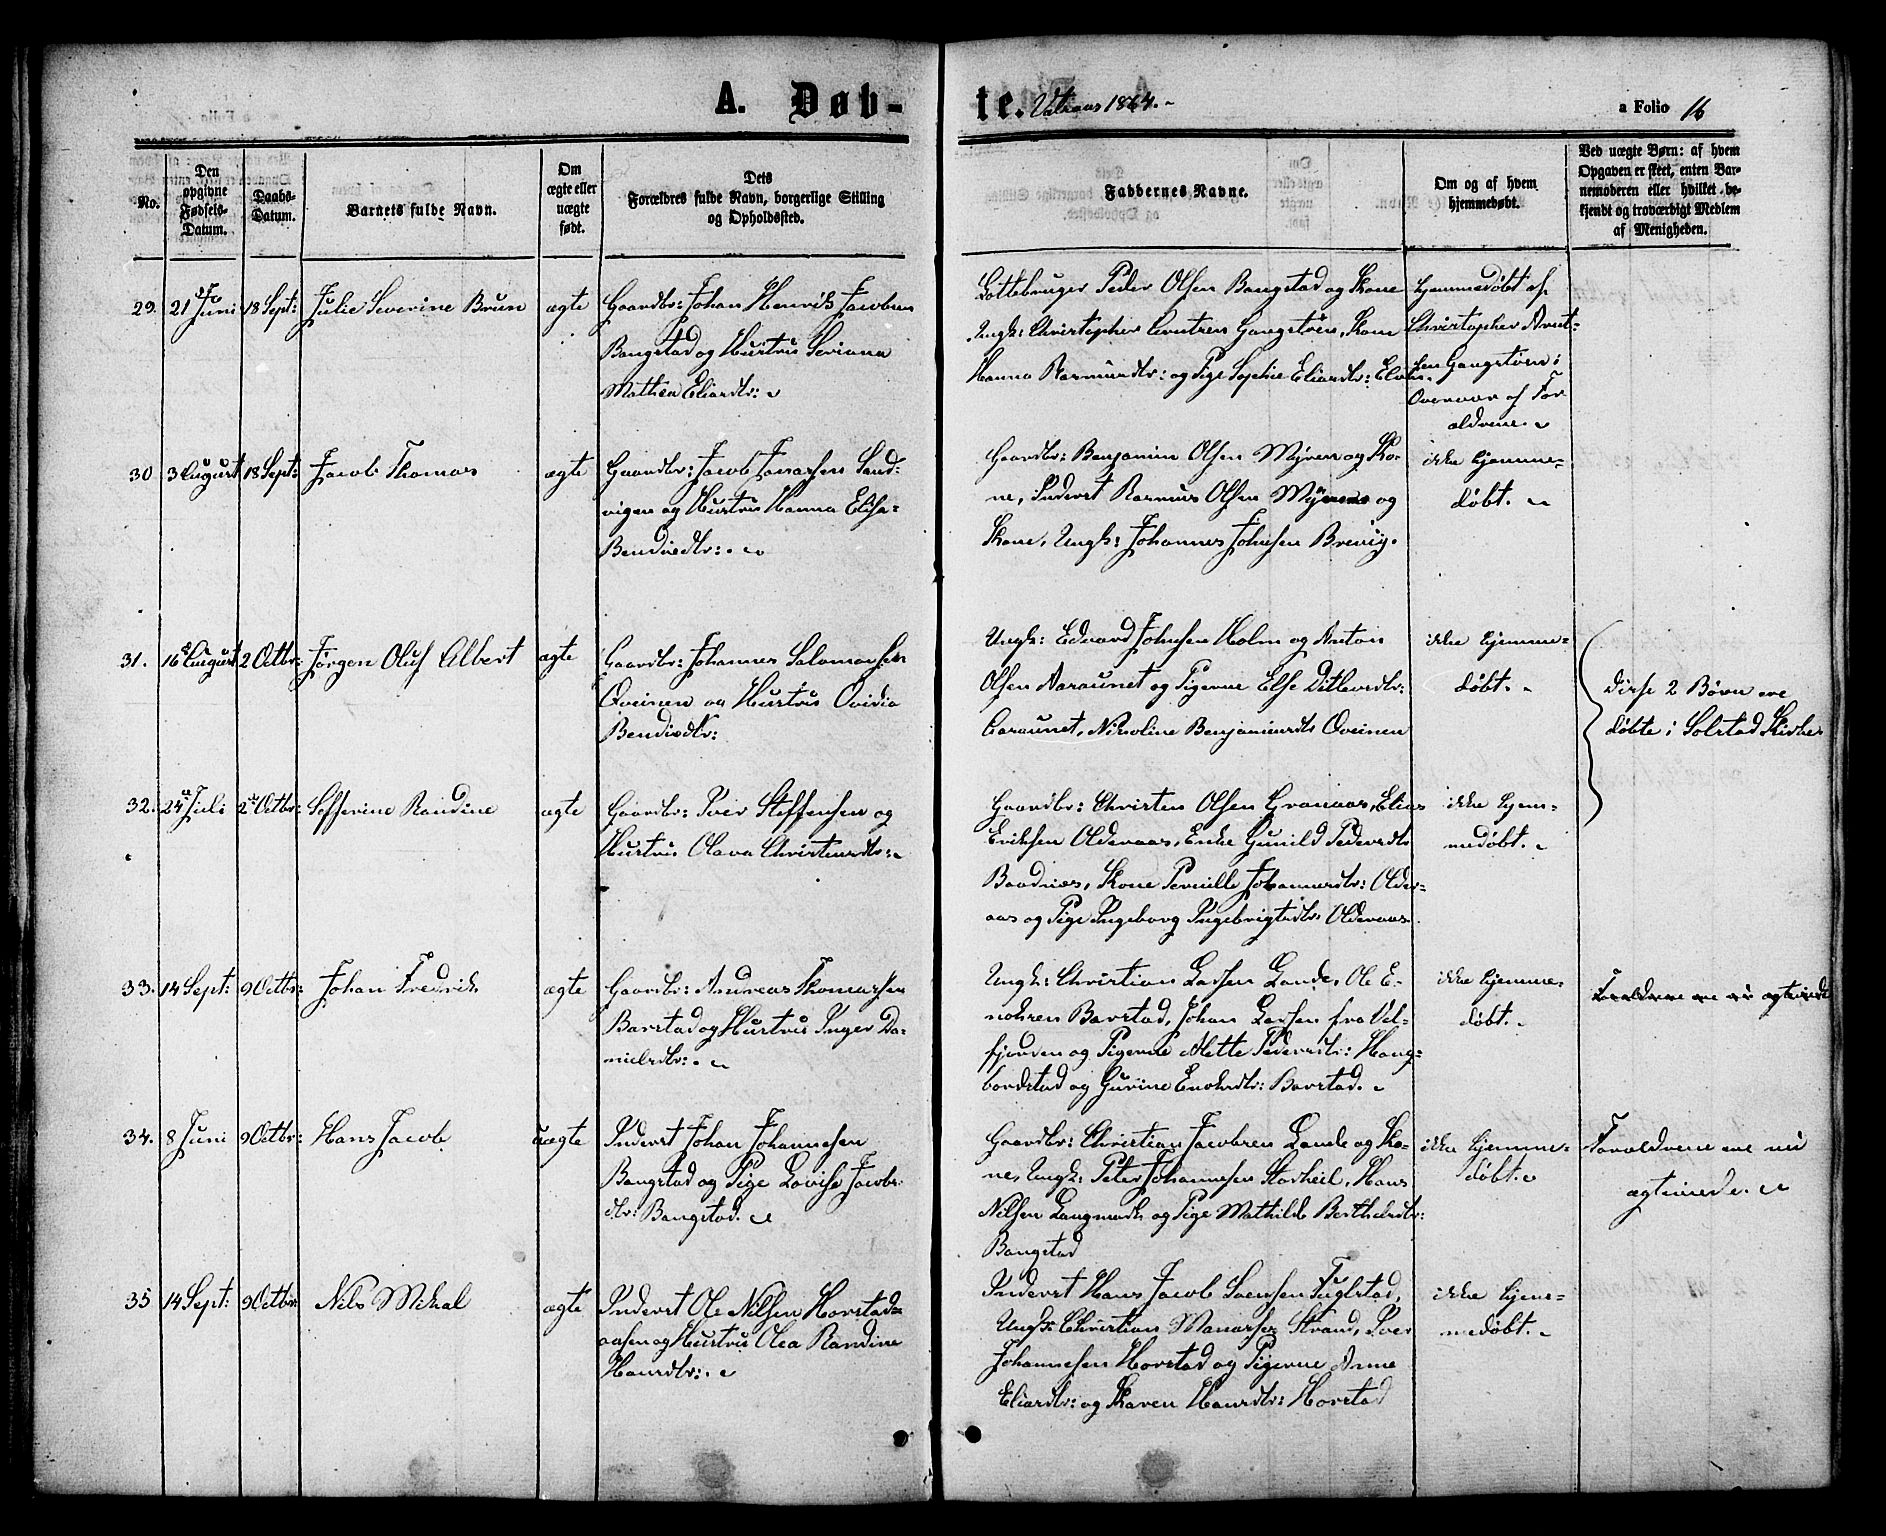 A. Døb-
te. Vatnaas 1864.
a Folio 16
No.
Den opgivne Fødsels-Datum.
Daabs-Datum.
Barnets fulde Navn.
Om ægte eller uægte født.
Dets Forældres fulde Navn, borgerlige Stilling og Opholdssted.
Faddernes Navne.
Om og af hvem hjemmedøbt.
Ved uægte Børn: af hvem Opgaven er skeet, enten Barnemoderen eller hvilket bekjendt og troværdigt Medlem af Menigheden.
29. 21 Juni 18 Sept: Julie Severine Brun ægte
Gaardbr: Johan Henrik Jacobsen
Bangstad og Hustru Seviana
Mathea Eliasdtr:
Peder Olsen Bangstad og Kone
Ungk: Christopher Gangstøen, Kone
Hanna Rasmusdtr: og Pige Sophie Eliasdtr:
hjemmedøbt af
Christopher Arnt-
sen Gangstøen i
Overvær af For
ældrene.
30 3 August 18 Sept: Jacob Thomas ægte
Gaardbr: Jacob Jonassen Sand-
vigen og Hustru Hanna Elisa
Bendixdtr:
Gaardbr: Benjamin Olsen Myren og Ko-
ne, Inderst Rasmus Olsen Myrens og
Kone, Ungk: Johannes Johnsen Brevig.
ikke hjemme-
døbt.
31. 16 August 2 Octbr: Jørgen Oluf Albert ægte
Gaardbr: Johannes Salomonsen
Qveinen og Hustru Ovidia
Bendixdtr:
Ungk: Edvard Johnsen Holm og Anton
Olsen Aaraunet og Pigerne Else Ditlevsdtr:
Aaraunet, Nicoline Benjaminsdtr Qveinen
ikke hjemme-
døbt.
disse 2 Børn ere
døbte i Solstad Kirke
32. 24 Juli 2 Octbr: Sefferine Randine ægte
Gaardbr: Iver Steffensen og
Hustru Olava Christensdtr:
Gaardbr: Christen Olsen Granaas, Elias
Eriksen Olderaas, Enke Gunild Pedersdtr
Baadnæs, Kone Pernille Johannesdtr: Older-
aas og Pige Ingeborg Ingebrigtsdtr: Olderaas.
ikke hjem-
medøbt.
33. 14 Sept: 9 Octbr: Johan Fredrik ægte
Gaardbr: Andreas Thomassen
Barstad og Hustru Inger Da-
nielsdtr:
Ungk: Christian Larsen Lande, Ole E-
nochsen Barstad, Johan Larsen fra Vel-
fjorden og Pigerne Mette Pedersdtr: Hong-
bordstad og Gurine Enochsdtr: Barstad.
ikke hjemme-
døbt.
Forældrene ere nu ægteviede
34. 8 Juni 9 Octbr: Hans Jacob uægte
Inderst Johan Johannesen
Bangstad og Pige Lovise Jacobs-
dtr: Bangstad.
Gaardbr: Christian Jacobsen Lande og Ko-
ne, Ungk: Peter Johannesen Storheil, Hans
Nilsen Langmark og Pige Mathilde Berthelsdtr:
Bangstad
ikke hjemme-
døbt.
Forældrene ere nu
ægteviede.
35 14 Sept: 9 Octbr: Nils Mikal ægte
Inderst Ole Nilsen Horstad-
aasen og Hustru Olea Randine
Hansdtr:
Inderst Hans Jacob Svensen Fuglstad,
Ungk: Christian Manassen Strand, Iver
Johannesen Horstad og Pigerne Anne
Eliasdtr: og Karen Hansdtr: Horstad
ikke hjem-
medøbt.